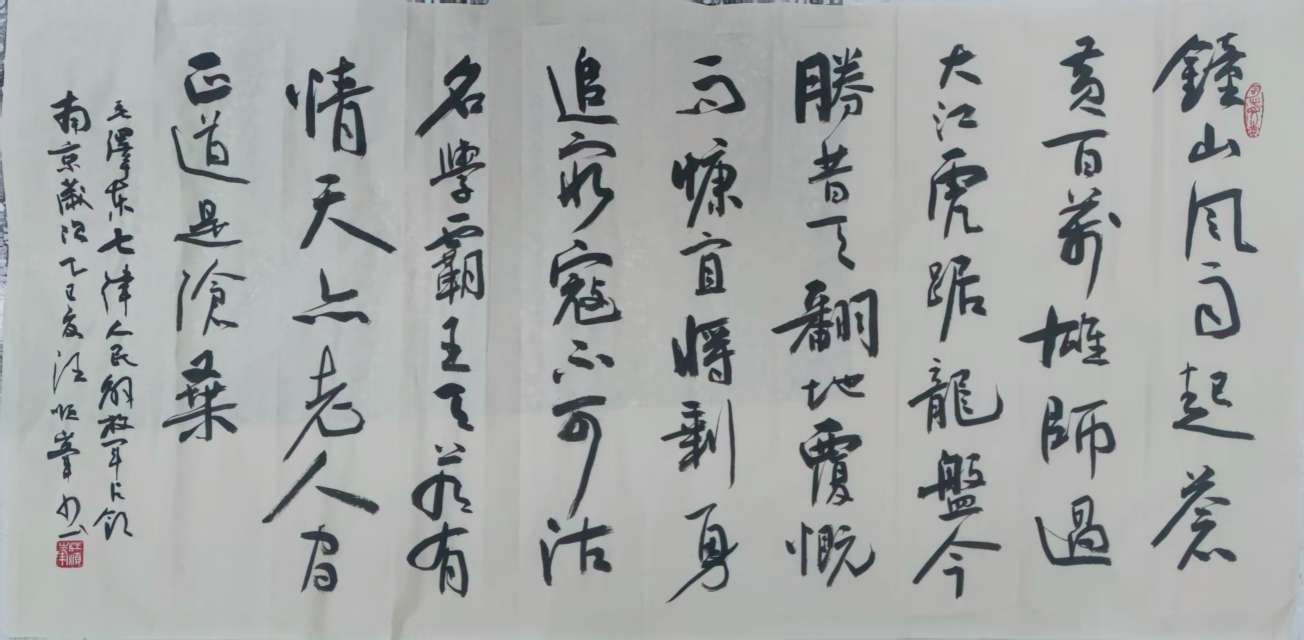 鐘山风雨起蒼
黄百萬雄師過
大江虎踞龍盤今
勝昔天翻地覆慨
而慷宜將剩勇
追穷寇不可沽
名學霸王天若有
情天亦老人间
正道是滄桑
毛澤东七律人民解放军占领
南京歲次乙巳夏汪顺峯书